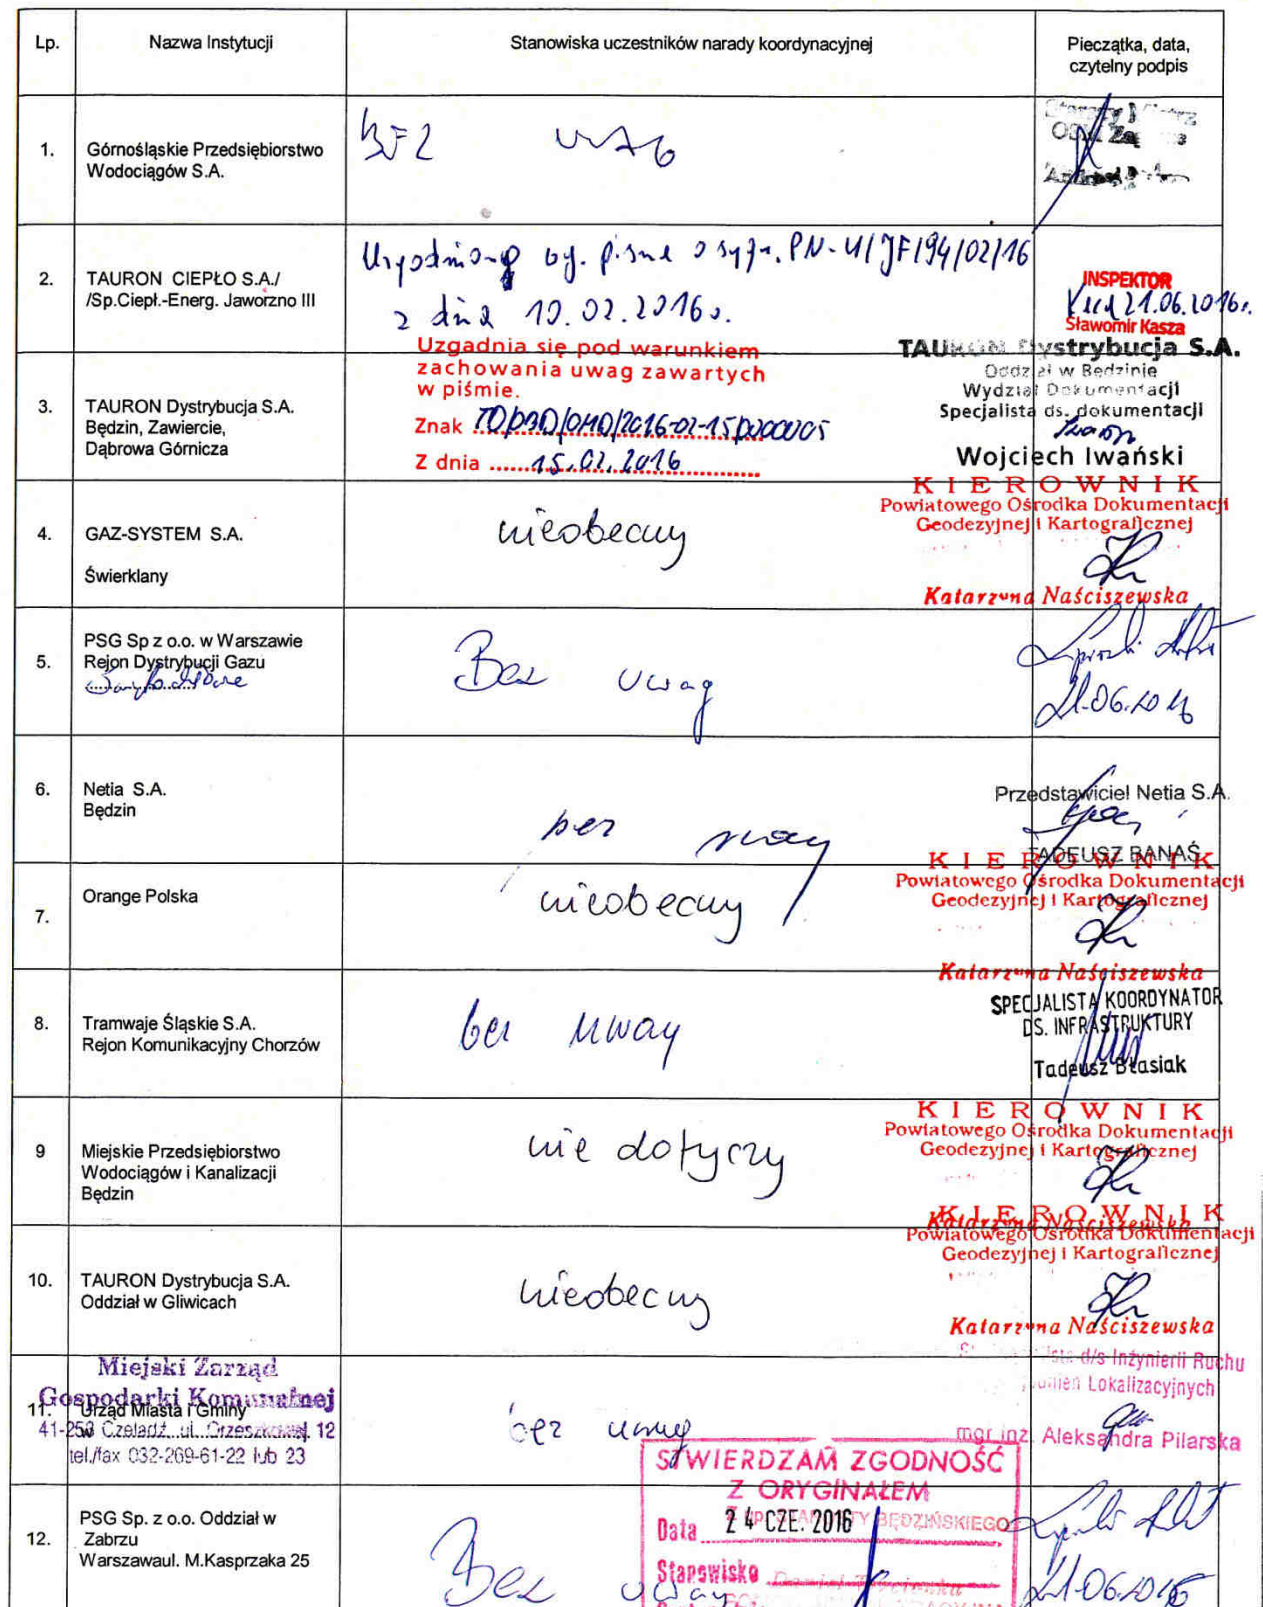 Lp.
Nazwa Instytucji
Stanowiska uczestników narady koordynacyjnej
Pieczątka, data,
czytelny podpis
1.
Górnośląskie Przedsiębiorstwo
Wodociągów S.A.
2.
TAURON CIEPŁO S.A./
/Sp.Ciepł.-Energ. Jaworzno III
z dnia 10.02.2016 r.
INSPEKTOR
21.06.2016r.
Sławomir Kasza
3.
TAURON Dystrybucja S.A.
Będzin, Zawiercie,
Dąbrowa Górnicza
Uzgadnia się pod warunkiem
zachowania uwag zawartych
w piśmie.
Znak
Z dnia 15.02.2016
TAURON Dystrybucja S.A.
Oddział w Będzinie
Wydział Dokumentacji
Specjalista ds. dokumentacji
Wojciech Iwański
4.
GAZ-SYSTEM S.A.
Świerklany
nieobecny
KIEROWNIK
Powiatowego Ośrodka Dokumentacji
Geodezyjnej i Kartograficznej
Katarzyna Naściszewska
5.
PSG Sp z o.o. w Warszawie
Rejon Dystrybucji Gazu
Bez uwag
21.06.2016
6.
Netia S.A.
Będzin
bez uwag
Przedstawiciel Netia S.A.
TADEUSZ BANAŚ
7.
Orange Polska
nieobecny
KIEROWNIK
Powiatowego Ośrodka Dokumentacji
Geodezyjnej i Kartograficznej
Katarzyna Naściszewska
8.
Tramwaje Śląskie S.A.
Rejon Komunikacyjny Chorzów
bez uwag
SPECJALISTA KOORDYNATOR
DS. INFRASTRUKTURY
Tadeusz Błasiak
9
Miejskie Przedsiębiorstwo
Wodociągów i Kanalizacji
Będzin
nie dotyczy
KIEROWNIK
Powiatowego Ośrodka Dokumentacji
Geodezyjnej i Kartograficznej
Katarzyna Naściszewska
10.
TAURON Dystrybucja S.A.
Oddział w Gliwicach
nieobecny
KIEROWNIK
Powiatowego Ośrodka Dokumentacji
Geodezyjnej i Kartograficznej
Katarzyna Naściszewska
11.
Urząd Miasta i Gminy
w
Miejski Zarząd
Gospodarki Komunalnej
41-250 Czeladź, ul. Orzeszkowej 12
tel./fax 032-269-61-22 lub 23
bez uwag
d/s Inżynierii Ruchu
Lokalizacyjnych
mgr inż. Aleksandra Pilarska
12.
PSG Sp. z o.o. Oddział w
Zabrzu
Warszawaul. M.Kasprzaka 25
Bez uwag
21.06.2016
STWIERDZAM ZGODNOŚĆ
Z ORYGINAŁEM
Z up. STAROSTY BĘDZIŃSKIEGO
Data 24 CZE. 2016
Stanowisko